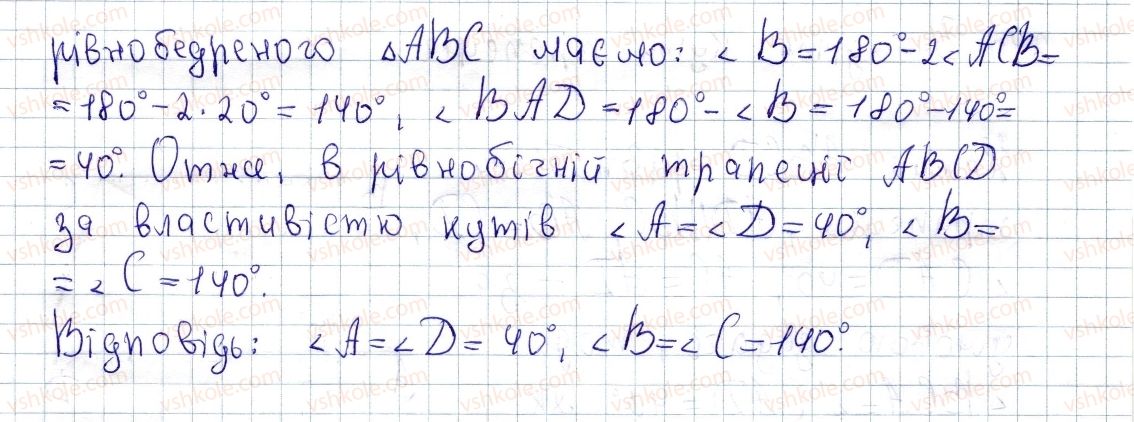 рівнобедреного △ABC маємо: ∠B=180°-2∠ACB=
=180°-2·20°=140°, ∠BAD=180°-∠B=180°-140°=
=40°. Отже, в рівнобічній трапеції ABCD
за властивістю кутів ∠A=∠D=40°, ∠B=
=∠C=140°.
Відповідь: ∠A=∠D=40°, ∠B=∠C=140°.